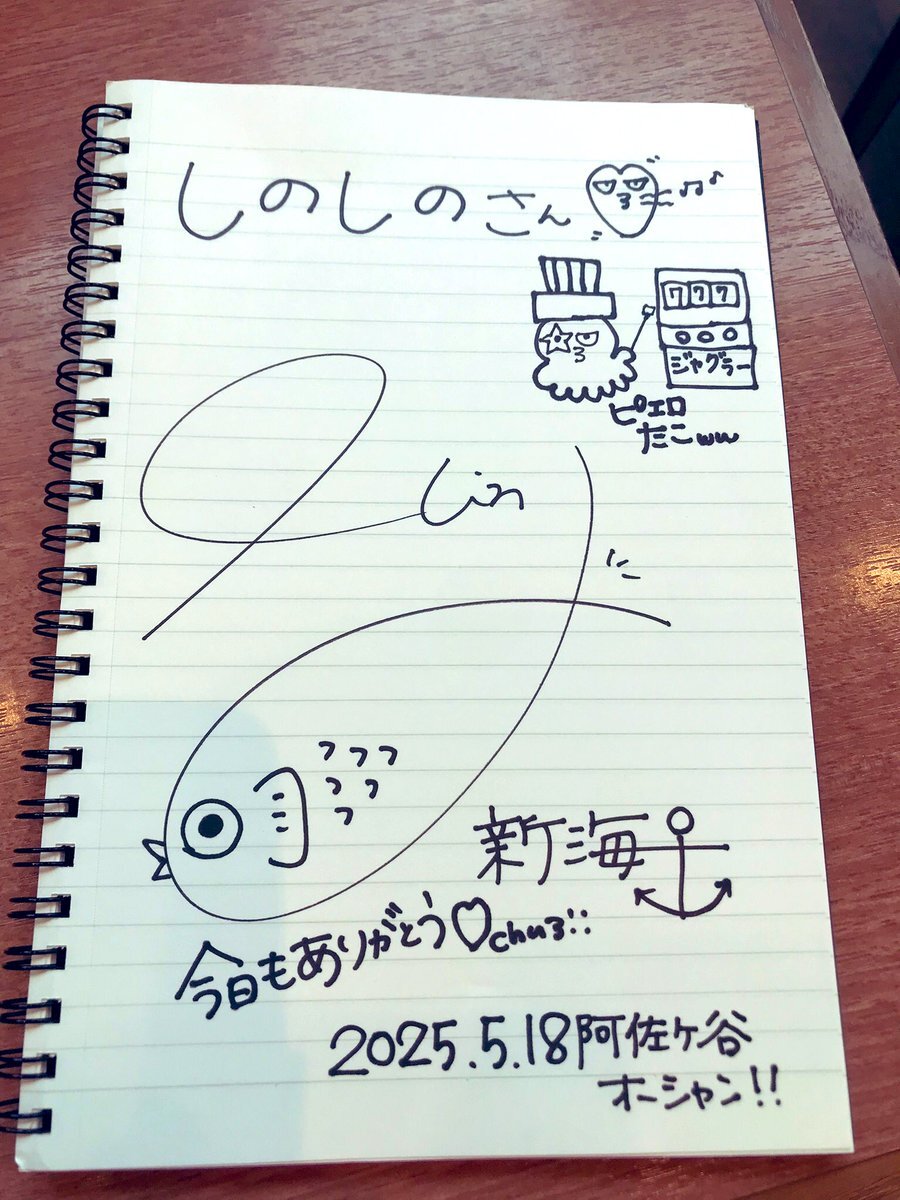 しのしのさん
777
ジャグラー
ピエロ
たこww
新海
今日もありがとう♡chu3!!
2025.5.18阿佐ヶ谷
オーシャン!!